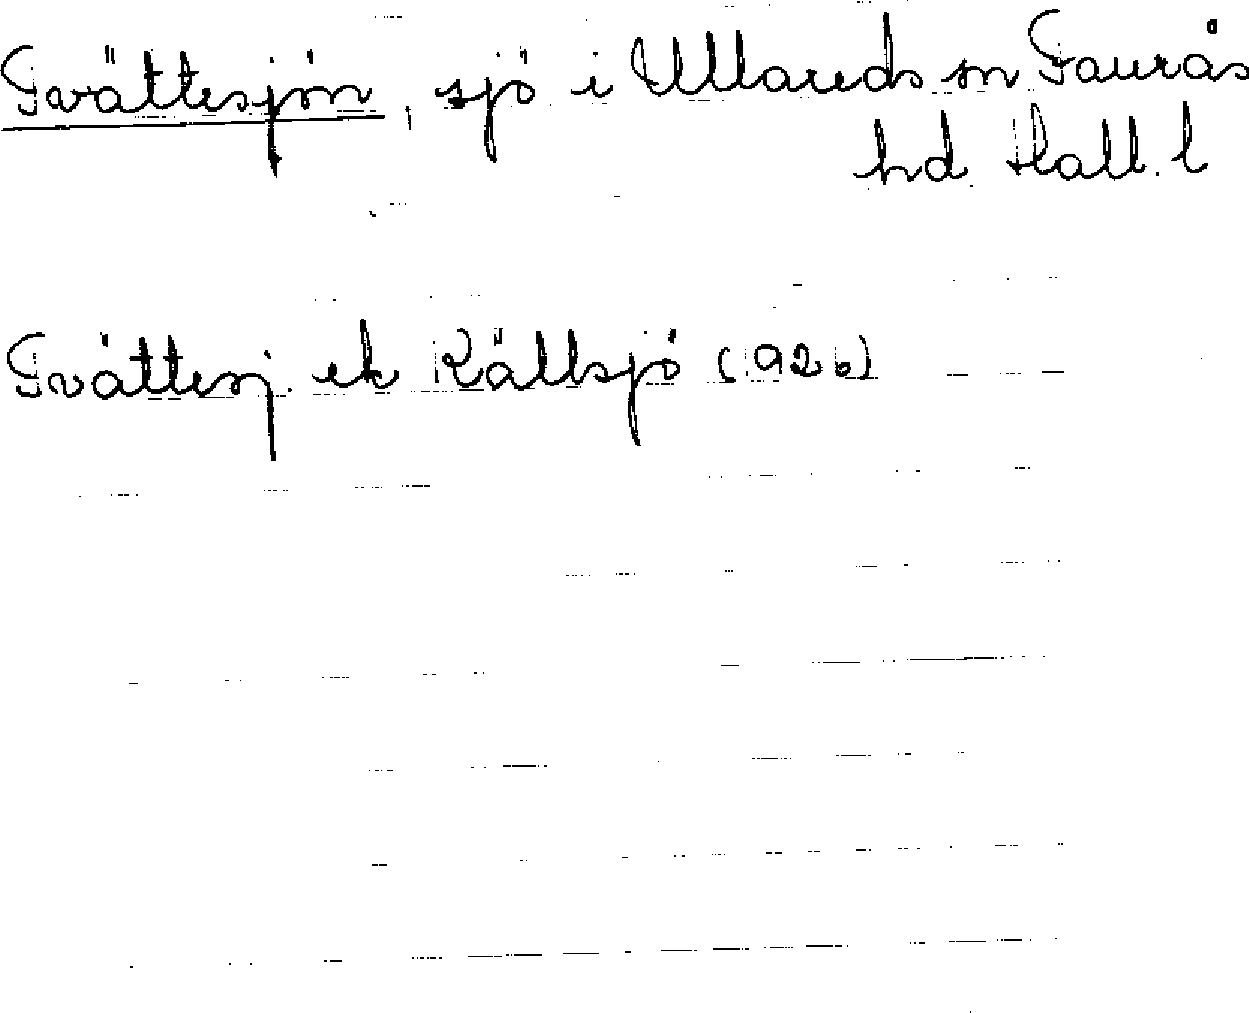 Tvättesjön, sjö i Ullareds sn Faurås
hd. Hall. l
Tvättesj. ek Källsjö (1926)